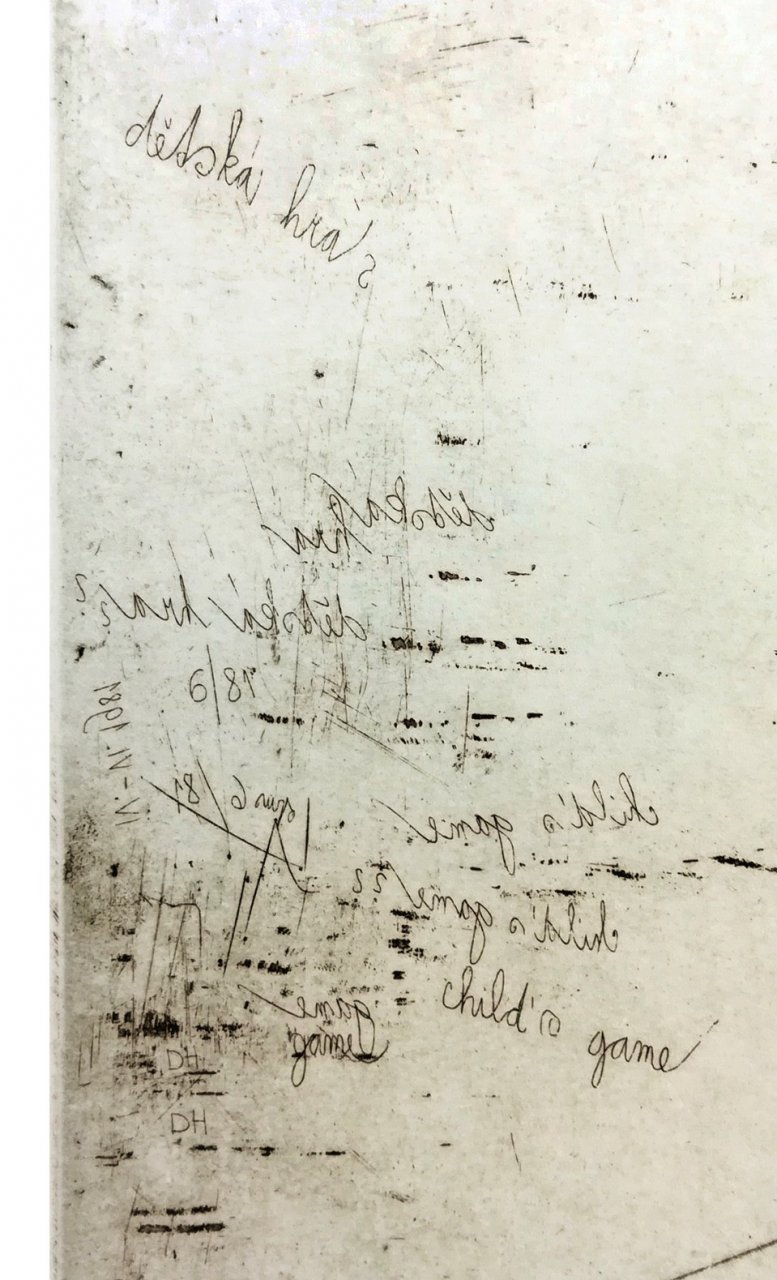 dětská
hrá?
dětská
hra
dětská hra??
9/81
IV.-VI. 1981
6/81
child's game
child's game??
child's
game
game
game
DH
DH